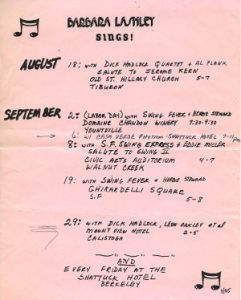 BARBARA LASHLEY
SINGS!
AUGUST 18: WITH DICK HADLOCK QUARTET & AL PLANK
SALUTE TO JEROME KERN
OLD ST. HILLARY CHURCH 5-7
TIBURON
SEPTEMBER 2: (LABOR DAY) WITH SWING FEVER & HERBIE STEWARD
DOMAINE CHANDON WINERY 7:30-9:30
YOUNTVILLE
6: w/ CASA VERDE RHYTHM - SHATTUCK HOTEL
8: WITH S.F. SWING EXPRESS & EDDIE MILLER
SALUTE TO SWING II
CIVIC ARTS AUDITORIUM 4-7
WALNUT CREEK
19: WITH SWING FEVER & HERBIE STEWARD
GHIRARDELLI SQUARE
S.F. 5-8
29: WITH DICK HADLOCK, LEON OAKLEY ET AL
MOUNT VIEW HOTEL 2-5
CALISTOGA
AND
EVERY FRIDAY AT THE
SHATTUCK HOTEL
BERKELEY